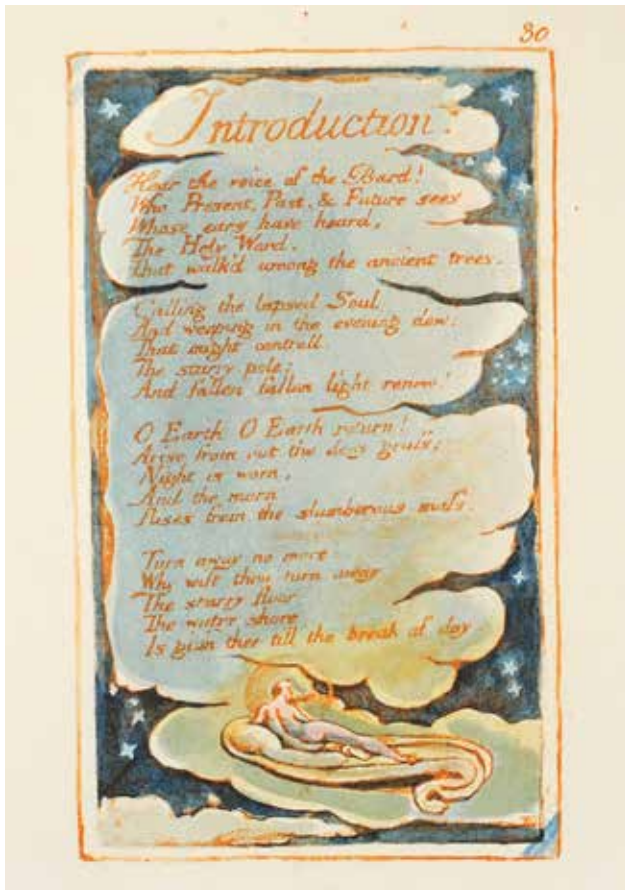 30
Introduction.
Hear the voice of the Bard!
Who Present, Past, & Future sees
Whose ears have heard,
The Holy Word,
That walk'd among the ancient trees.
Calling the lapsed Soul
And weeping in the evening dew:
That might controll
The starry pole;
And fallen fallen light renew!
O Earth O Earth return!
Arise from out the dewy grass;
Night is worn,
And the morn
Rises from the slumberous mass.
Turn away no more:
Why wilt thou turn away
The starry floor
The watry shore
Is giv'n thee till the break of day